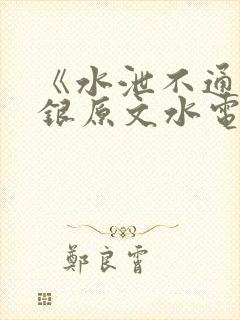 《水泄不通
银原文水電
鄭良霄